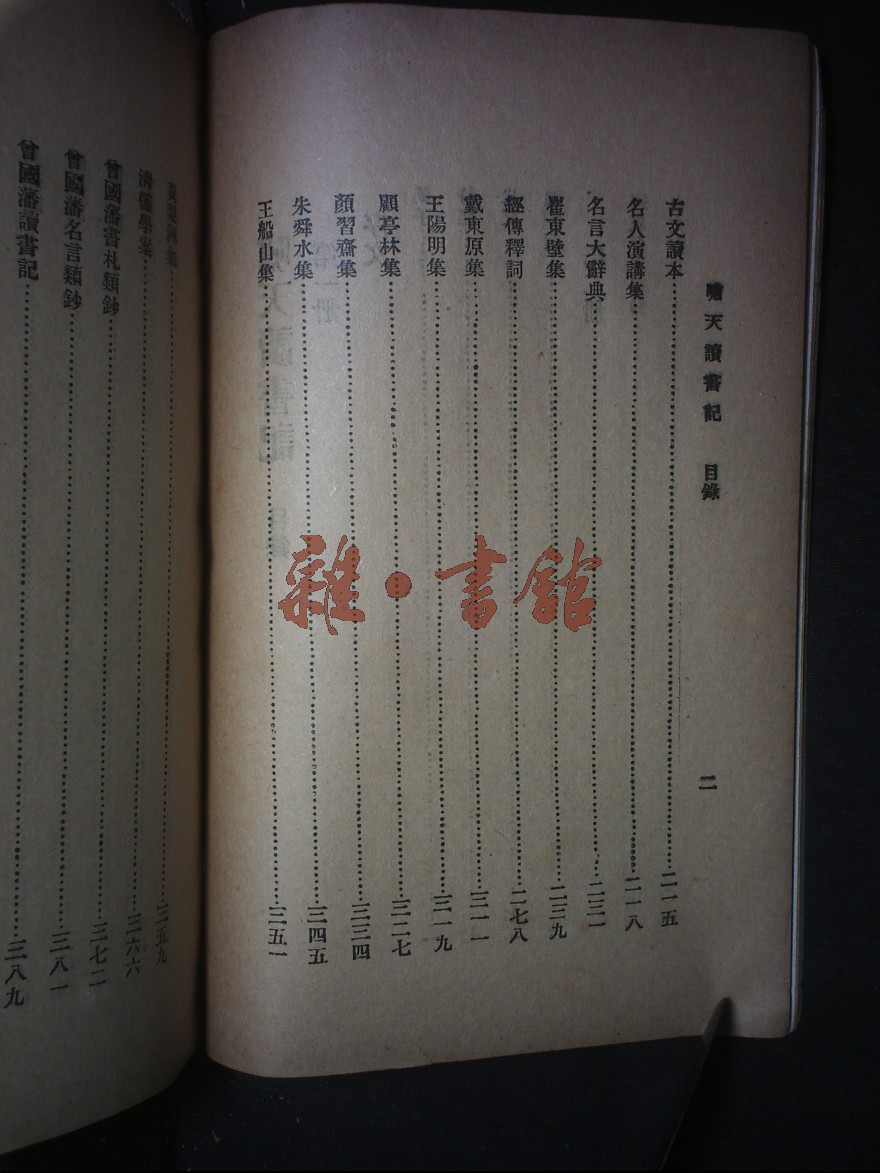 嘯天讀書記 目錄 二
古文讀本……二一五
名人演講集……二一八
名言大辭典……二三一
崔東壁集……二三九
經傳釋詞……二七八
戴東原集……三一一
王陽明集……三一九
顧亭林集……三二七
顏習齋集……三三四
朱舜水集……三四五
王船山集……三五一
黃梨洲集……三五九
清儒學案……三六六
曾國藩書札類鈔……三七二
曾國藩名言類鈔……三八一
曾國藩讀書記……三八九
雜·書館